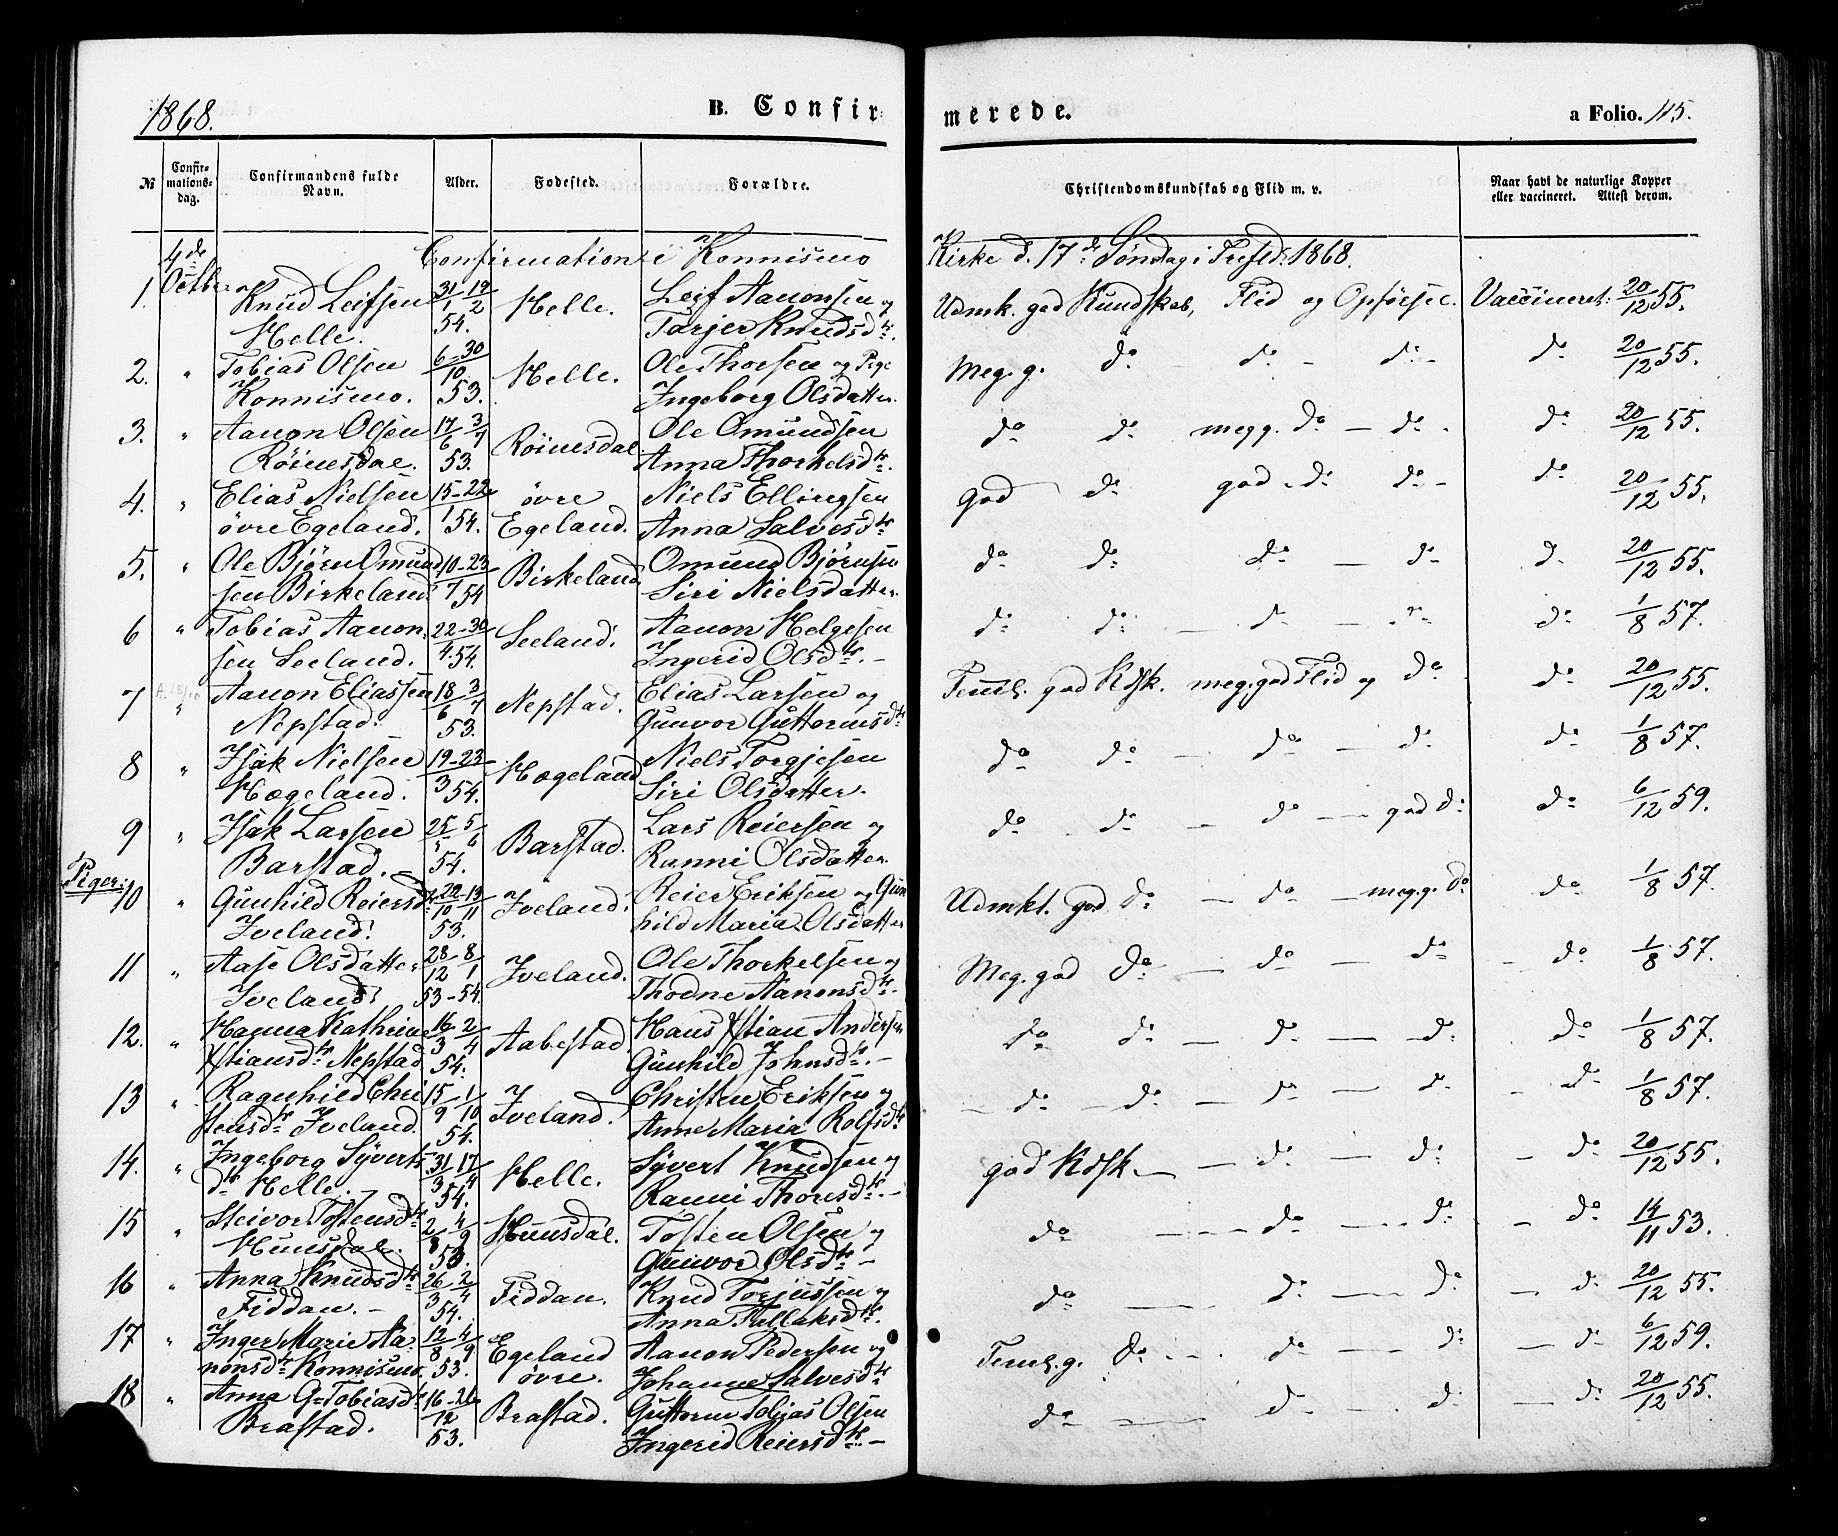 1868. B. Confirmerede. a Folio. 115.
№ Confirmations-dag. Confirmandens fulde Navn. Alder. Fødested. Forældre. Christendomskundskab og Flid m. v. Naar havt de naturlige Kopper eller vaccineret. Attest derom.
4de Octbr Confirmation i Konnismo Kirke d. 17de Søndag i Trefd. 1868.
1. Knud Leifsen 31/1 - 19/2 Helle. Leif Aanonsen og Udmk. god Kundskab, Flid og Opførsel. Vaccineret: 20/12 55.
Helle. 54. Tarjer Knudsdtr.
2. " Tobias Olsen 6-30/10 Helle. Ole Thorsen og Pige Meg. g. do - do - do - do 20/12 55.
Konnismo. 53. Ingeborg Olsdatter.
3. " Aanon Olsen 17/6 3/7 Røinesdal. Ole Omundsen do do megg. do - do - do 20/12 55.
Røinesdal. 53. Anna Thorkelsdtr.
4. " Elias Nielsen 15-22/1 øvre Niels Ellingsen god do god - do do - do 20/12 55.
øvre Egeland. 54. Egeland. Anna Salvesdtr
5. " Ole Bjørn Omund 10-23/7 Birkeland Omund Bjørnsen do do do - do d. 20/12 55.
sen Birkeland. 54 Siri Nielsdatter.
6 " Tobias Aanon 22-30/4 Seeland. Aanon Helgesen do do - do - do do 1/8 57.
sen Seeland. 54. Ingerid Olsdtr. -
7 " Aanon Eliassen 18/6 3/7 Nepstad. Elias Larsen og Teml. god Kdsk. meg. god Flid og do do 20/12 55.
Nepstad. 53. Gunvor Guttormsdtr
8 " Isak Nielsen 19-23/3 Hægeland Niels Torgjesen do do - do - do do 1/8 57.
Hægeland. 54. Siri Olsdatter.
9 " Isak Larsen 25/5 5/6 Barstad. Lars Reiersen og do do - do - god do do 6/12 59.
Barstad. 54. Ranni Olsdatter.
Piger:
10 " Gunhild Reiersdtr 29/10 - 13/11 Iveland. Reier Eriksen og Gun Udmkt. god do - do - meg. g. do do 1/8 57.
Iveland. 53. hild Maria Olsdatter
11 " Aase Olsdatter 28/12 8/1 Iveland. Ole Thorkelsen og Meg. god do - do - do - do 1/8 57.
Iveland. 53-54. Thodne Aanonsdtr.
12. " Hanna Kathrine 16/3 2/4 Aabestad. Hans Xstian Andersen do do - do - do do 1/8 57.
Xstiansdtr Nepstad 54. Gunhild Johnsdtr. -
13 " Ragnhild Chri 15/9 1/10 Iveland. Christen Eriksen og - do - do - do - do - do 1/8 57.
stensdtr Iveland. 54. Anne Maria Rolfsdtr
14. " Ingeborg Syverts 31/3 17/4 Helle. Syvert Knudsen og god Kdsk. - do - do - do 20/12 55.
dtr Helle. - 54. Ranni Thoresdtr. -
15 " Steivor Tostensdtr 2/8 4/9 Hunsdal. Tosten Olsen og do - do - do - do 14/11 53.
Hunsdal. 53. Gunvor Olsdtr -
16 " Anna Knudsdtr 26/3 2/4 Fiddan. Knud Torjussen og do - do - do - do 20/12 55.
Fiddan. - 54. Anna Tallaksdtr.
17 " Inger Marie Aa 12/8 4/9 Egeland Aanon Pedersen og Teml. g. do - do - do - do 6/12 59.
nonsdtr Konnismo. 53. øvre. Johanne Salvesdtr
18 " Anna G. Tobiasdtr 16-26/12 Brastad. Guttorm Tobias Olsen do - do - do - do 20/12 55.
Brastad. 53. Ingerid Reiersdtr. -